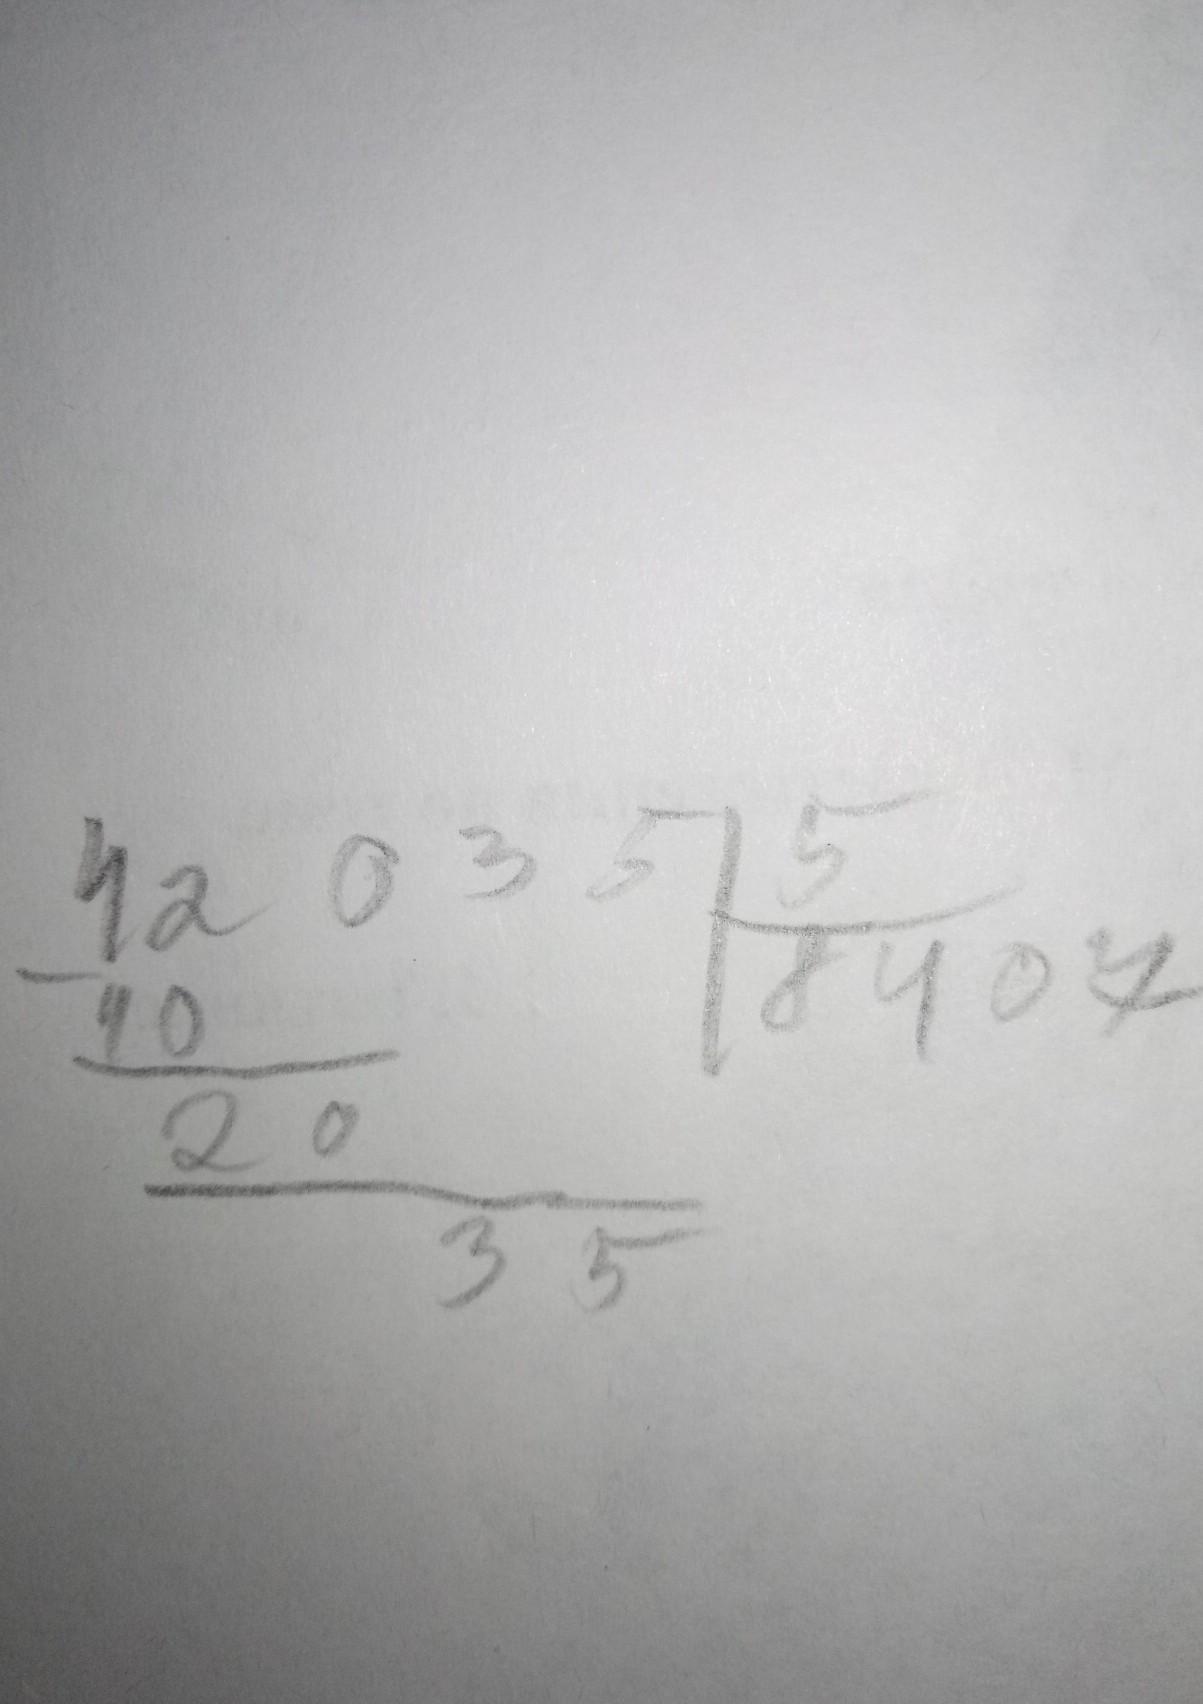 42035 5
- 40 8407
20
35